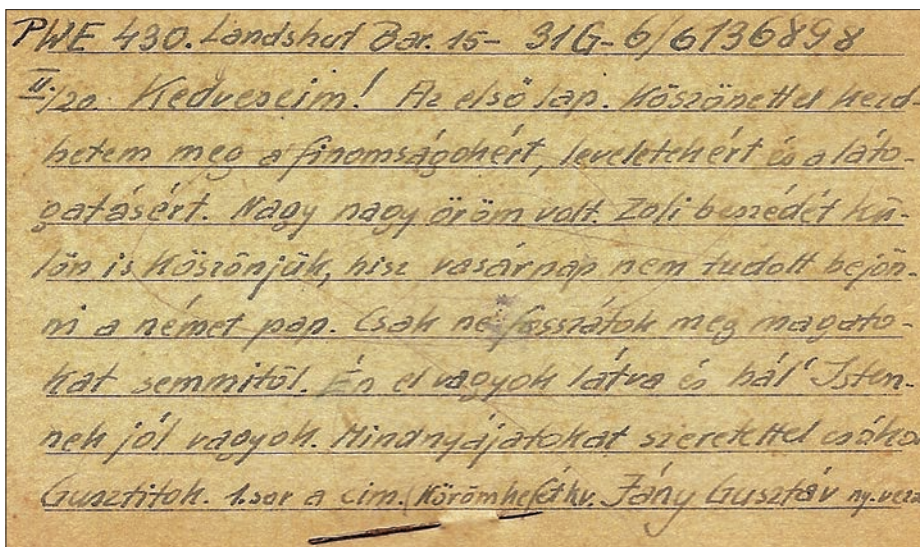 PWE 430. Landshut Bar. 15- 31G-6/6136898
II./20. Kedveseim! Az első lap. Köszönettel kezd
hetem meg a finomságokért, leveletekért és a láto-
gatásért. Nagy nagy öröm volt. Zoli beszédét kü-
lön is köszönjük, hisz vasárnap nem tudott bejön-
ni a német pap. Csak ne fosszátok meg magato-
kat semmitől. Én el vagyok látva és hál' Isten-
nek jól vagyok. Mindnyájatokat szeretettel csóko
Gusztitok. 1. sor a cim. Jány Gusztáv ny. vez